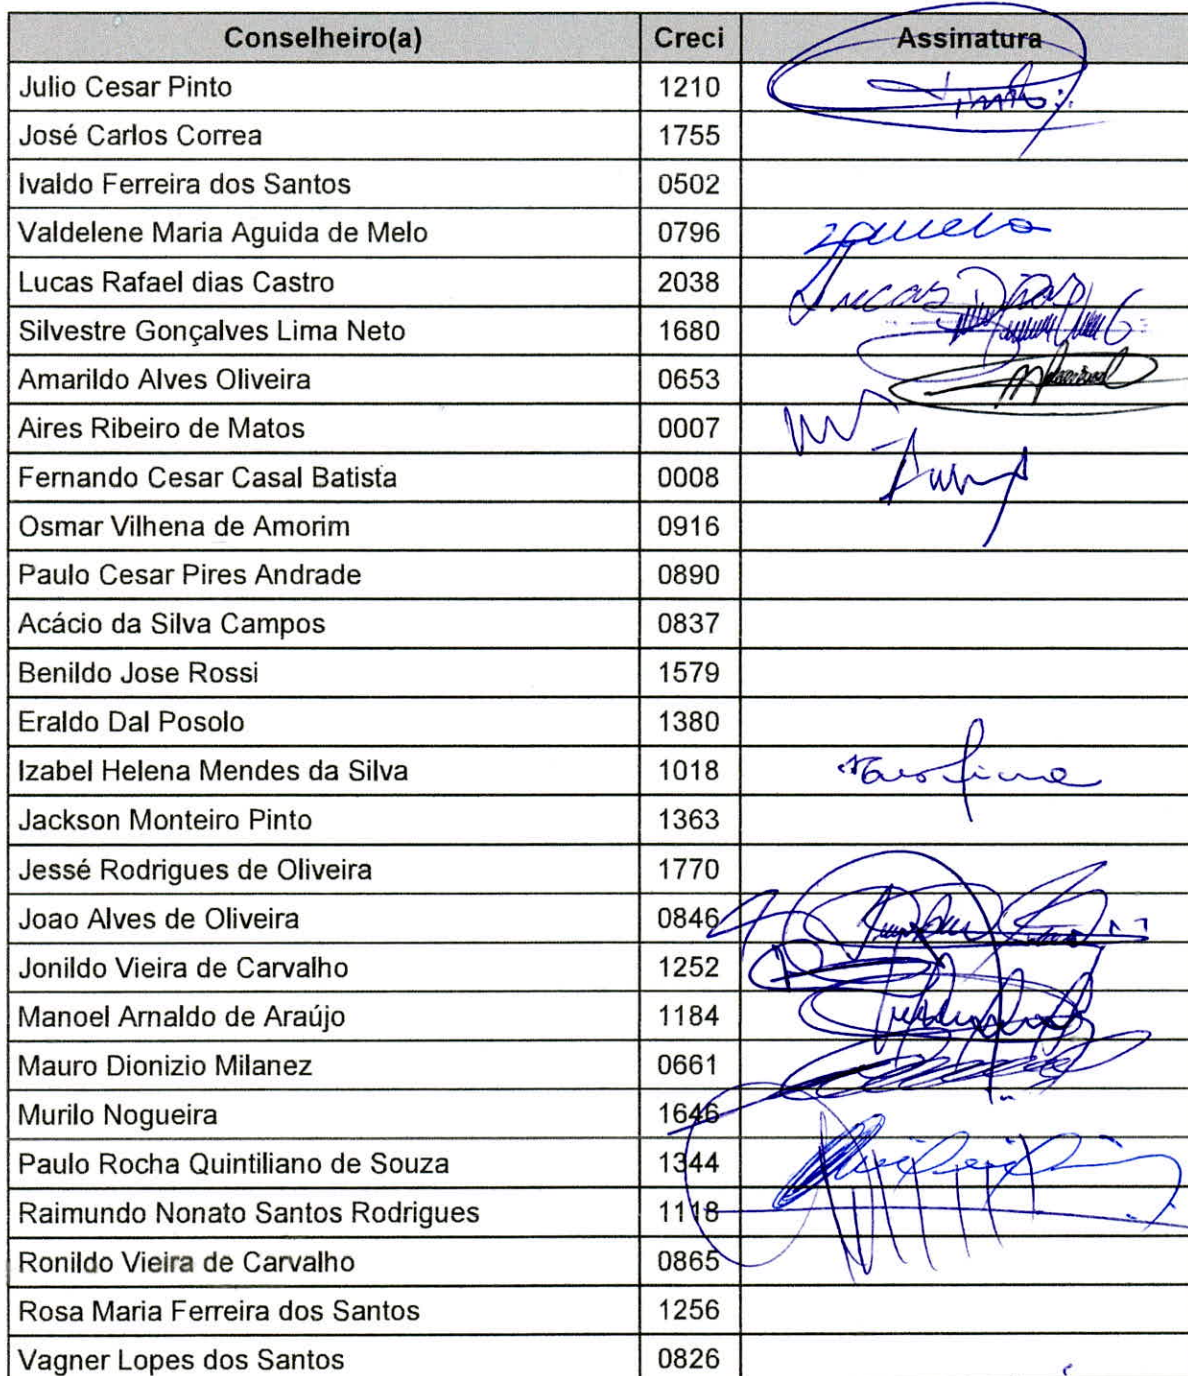 Conselheiro(a) Creci Assinatura
Julio Cesar Pinto 1210
José Carlos Correa 1755
Ivaldo Ferreira dos Santos 0502
Valdelene Maria Aguida de Melo 0796
Lucas Rafael dias Castro 2038 Lucas Dias
Silvestre Gonçalves Lima Neto 1680
Amarildo Alves Oliveira 0653
Aires Ribeiro de Matos 0007
Fernando Cesar Casal Batista 0008
Osmar Vilhena de Amorim 0916
Paulo Cesar Pires Andrade 0890
Acácio da Silva Campos 0837
Benildo Jose Rossi 1579
Eraldo Dal Posolo 1380
Izabel Helena Mendes da Silva 1018
Jackson Monteiro Pinto 1363
Jessé Rodrigues de Oliveira 1770
Joao Alves de Oliveira 0846
Jonildo Vieira de Carvalho 1252
Manoel Arnaldo de Araújo 1184
Mauro Dionizio Milanez 0661
Murilo Nogueira 1646
Paulo Rocha Quintiliano de Souza 1344
Raimundo Nonato Santos Rodrigues 1118
Ronildo Vieira de Carvalho 0865
Rosa Maria Ferreira dos Santos 1256
Vagner Lopes dos Santos 0826